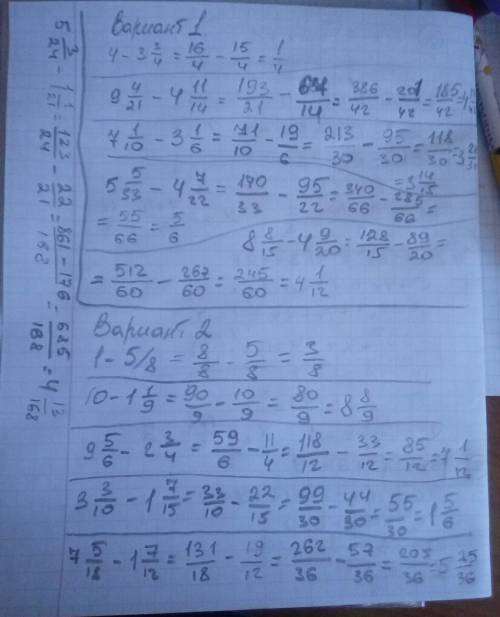 Вариант 1
4 - 3 3/4 = 16/4 - 15/4 = 1/4
9 4/21 - 4 11/14 = 193/21 - 67/14 = 386/42 - 201/42 = 185/42 = 4
7 1/10 - 3 1/6 = 71/10 - 19/6 = 213/30 - 95/30 = 118/30 = 3
= 3 14/15
5 5/33 - 4 7/22 = 170/33 - 95/22 = 340/66 - 285/66 =
= 55/66 = 5/6
8 8/15 - 4 9/20 = 128/15 - 89/20 =
= 512/60 - 267/60 = 245/60 = 4 1/12
Вариант 2
1 - 5/8 = 8/8 - 5/8 = 3/8
10 - 1 1/9 = 90/9 - 10/9 = 80/9 = 8 8/9
9 5/6 - 2 3/4 = 59/6 - 11/4 = 118/12 - 33/12 = 85/12 = 7 1/12
3 3/10 - 1 7/15 = 33/10 - 22/15 = 99/30 - 44/30 = 55/30 = 1 5/6
7 5/18 - 1 7/12 = 131/18 - 19/12 = 262/36 - 57/36 = 205/36 = 5 25/36
5 3/24 - 1 1/21 = 123/24 - 22/21 = 861 - 176/168 = 685/168 = 4 13/168